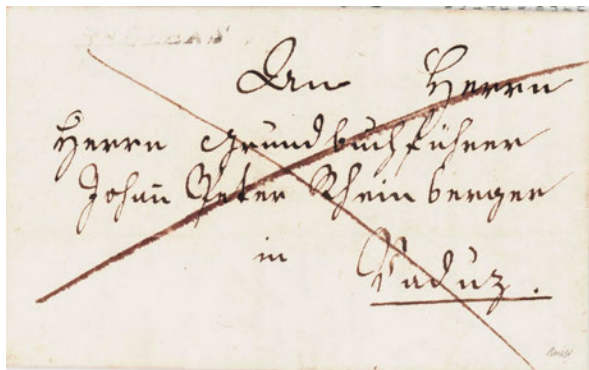 An Herrn
Herrn Grundbuchführer
Johañ Peter Rheinberger
in Vaduz.